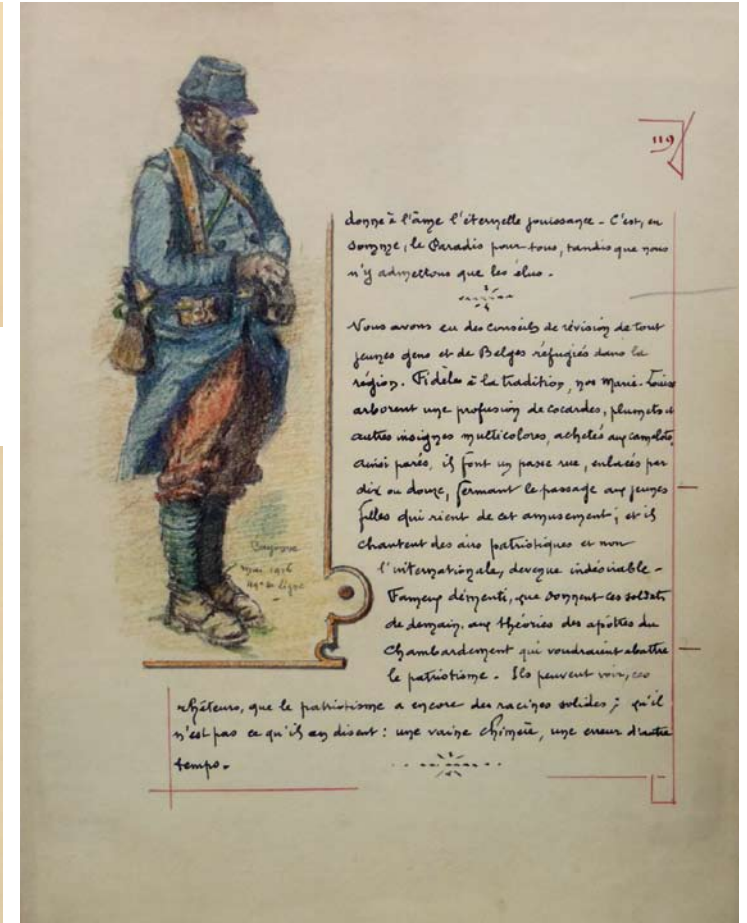 119
donne à l'âme l'éternelle jouissance - C'est, en
somme, le Paradis pour tous, tandis que nous
n'y admettons que les élus -
Nous avons eu des conseils de révision de tout
jeunes gens et de Belges réfugiés dans la
région. Fidèles à la tradition, nos Marie-Louise
arborent une profusion de cocardes, plumets et
autres insignes multicolores, achetés aux camelots,
ainsi parés, ils font un passe rue, enlacés par
dix ou douze, fermant le passage aux jeunes
filles qui rient de cet amusement ; et ils
chantent des airs patriotiques et non
l'internationale, devenue indésirable -
Fameux démenti, que donnent ces soldats
de demain, aux théories des apôtres du
chambardement qui voudraient abattre
le patriotisme - Ils peuvent voir, ces
rhéteurs, que le patriotisme a encore des racines solides ; qu'il
n'est pas ce qu'ils en disent : une vaine chimère, une erreur d'autre
temps -
mai 1916
de ligne